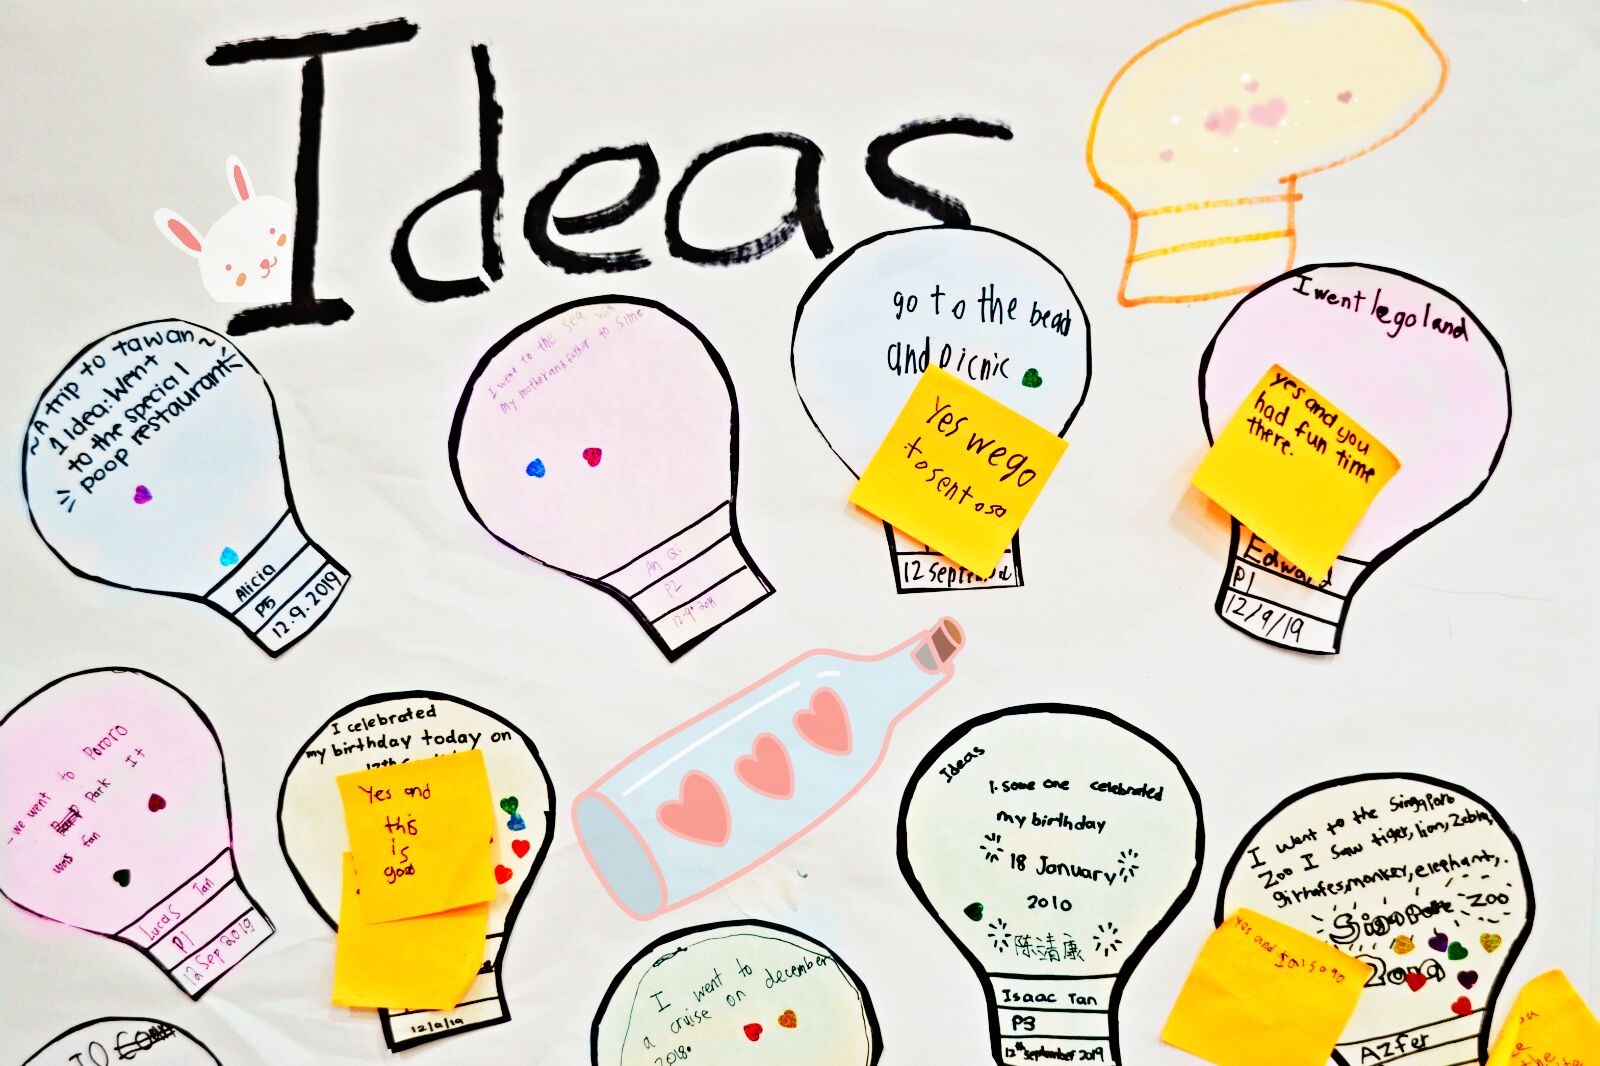 Ideas
~A trip to tawan~
1 Idea: Went
to the special
poop restaurant
Alicia
P5
12.9.2019
I went to the sea with
my mother and father to sime
An Qi
P2
go to the bead
and picnic
yes we go
to sentosa
12 September
I went legoland
yes and you
had fun time
there.
Edward
P1
12/9/19
we went to Pororo
Park It
was fan
Lucas Tan
P1
12 Sep 2019
I celebrated
my birthday today on
Yes and
this
is
good
12/9/19
I went to
a cruise on december
2018.
Ideas
1. some one celebrated
my birthday
18 January
2010
陈靖康
Isaac Tan
P3
12th september 2019
I want to the Singapore
Zoo I saw tiger, lion, Zebra,
girhafes, monkey, elephant,.
Singapore zoo
yes and I also go
Azfer
TO